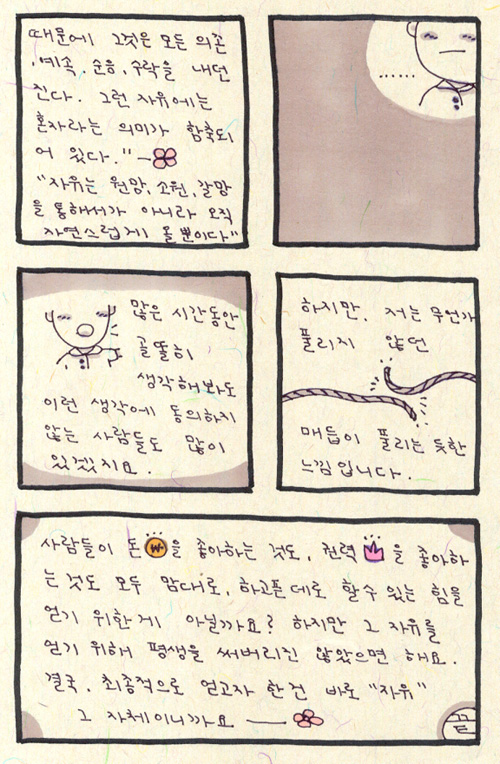 때문에 그것은 모든 의존
,예속, 순응, 수락을 내던
진다. 그런 자유에는
혼자라는 의미가 함축되
어 있다."
"자유는 원망, 소원, 갈망
을 통해서가 아니라 오직
자연스럽게 올 뿐이다"
......
많은 시간동안
골똘히
생각해봐도
이런 생각에 동의하지
않는 사람들도 많이
있겠지요.
하지만, 저는 무언가
풀리지 않던
매듭이 풀리는 듯한
느낌입니다.
사람들이 돈 ₩ 을 좋아하는 것도, 권력 을 좋아하
는 것도 모두 맘대로, 하고픈 데로 할 수 있는 힘을
얻기 위한게 아닐까요? 하지만 그 자유를
얻기 위해 평생을 써버리진 않았으면 해요.
결국, 최종적으로 얻고자 한건 바로 "자유"
그 자체이니까요
끝